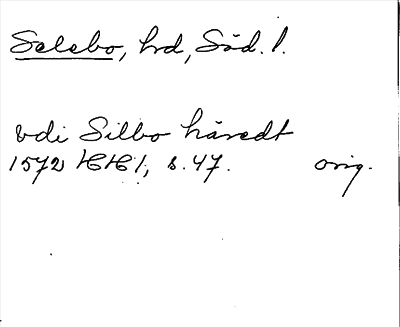 Selebo, hrd, Söd. l.
vdi Silbo häredt
1572 HH 1, s. 47. orig.